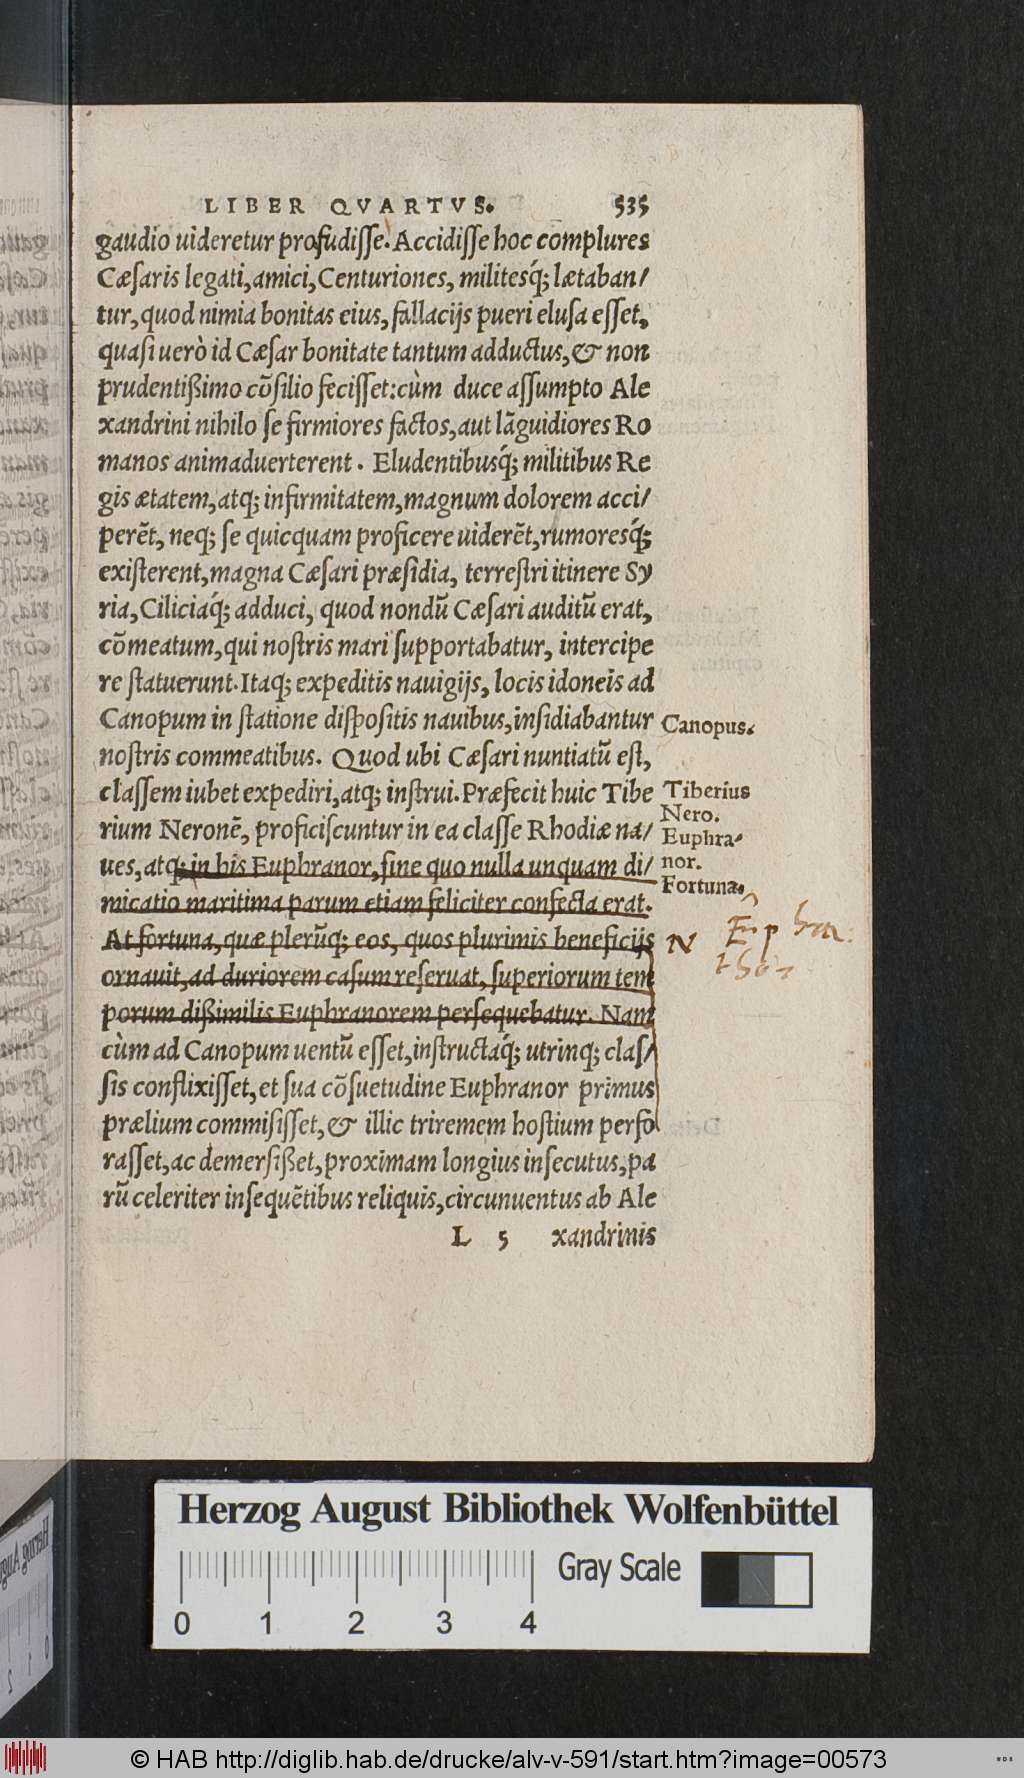 LIBER QVARTVS. 535
gaudio uideretur profudiſſe. Accidiſſe hoc complures
Cæſaris legati, amici, Centuriones, militesq́; lætaban/
tur, quod nimia bonitas eius, fallacijs pueri eluſa eſſet,
quaſi uerò id Cæſar bonitate tantum adductus, & non
prudentißimo cõſilio feciſſet: cùm duce aſſumpto Ale
xandrini nihilo ſe firmiores factos, aut lãguidiores Ro
manos animaduerterent. Eludentibusq́; militibus Re
gis ætatem, atq; infirmitatem, magnum dolorem acci/
perẽt, neq; ſe quicquam proficere uiderẽt, rumoresq́;
exiſterent, magna Cæſari præſidia, terreſtri itinere Sy
ria, Ciliciaq́; adduci, quod nondũ Cæſari auditũ erat,
cõmeatum, qui noſtris mari ſupportabatur, intercipe
re ſtatuerunt. Itaq; expeditis nauigijs, locis idoneis ad
Canopum in ſtatione diſpoſitis nauibus, inſidiabantur
Canopus.
noſtris commeatibus. Quod ubi Cæſari nuntiatũ eſt,
claſſem iubet expediri, atq; inſtrui. Præfecit huic Tibe
Tiberius
Nero.
rium Neronẽ, proficiſcuntur in ea claſſe Rhodiæ na/
Euphra-
nor.
ues, atq; in his Euphranor, ſine quo nulla unquam di/
Fortuna.
micatio maritima parum etiam feliciter confecta erat.
At fortuna, quæ plerũq; eos, quos plurimis beneficijs
N
ornauit, ad duriorem caſum reſeruat, ſuperiorum tem
porum dißimilis Euphranorem perſequebatur. Nam
cùm ad Canopum uentũ eſſet, inſtructaq́; utrinq; claſ/
ſis conflixiſſet, et ſua cõſuetudine Euphranor primus
prælium commiſiſſet, & illic triremem hoſtium perfo
raſſet, ac demerſißet, proximam longius inſecutus, pa
rũ celeriter inſequẽtibus reliquis, circunuentus ab Ale
L 5 xandrinis
Herzog August Bibliothek Wolfenbüttel
Gray Scale
0 1 2 3 4
© HAB http://diglib.hab.de/drucke/alv-v-591/start.htm?image=00573